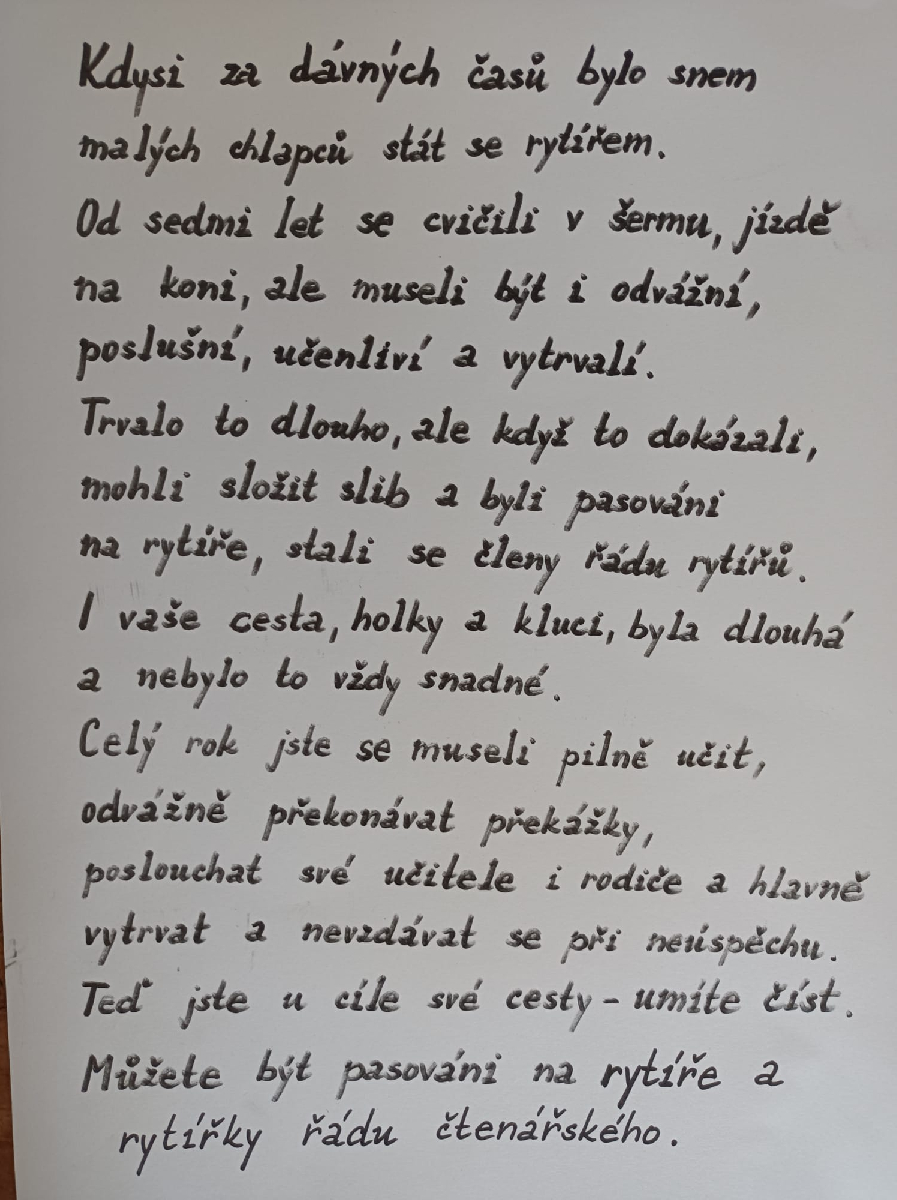 Kdysi za dávných časů bylo snem
malých chlapců stát se rytířem.
Od sedmi let se cvičili v šermu, jízdě
na koni, ale museli být i odvážní,
poslušní, učenliví a vytrvalí.
Trvalo to dlouho, ale když to dokázali,
mohli složit slib a byli pasováni
na rytíře, stali se členy řádu rytířů.
I vaše cesta, holky a kluci, byla dlouhá
a nebylo to vždy snadné.
Celý rok jste se museli pilně učit,
odvážně překonávat překážky,
poslouchat své učitele i rodiče a hlavně
vytrvat a nevzdávat se při neúspěchu.
Teď jste u cíle své cesty - umíte číst.
Můžete být pasováni na rytíře a
rytířky řádu čtenářského.